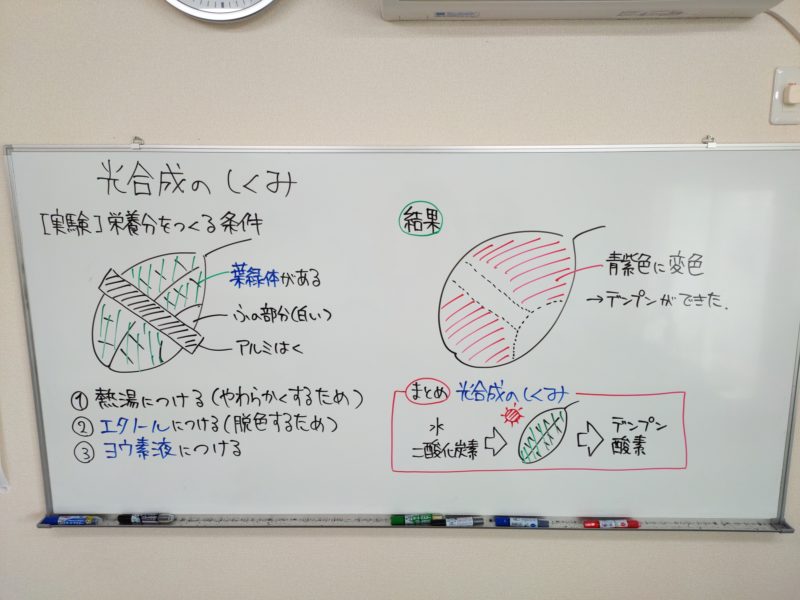 光合成のしくみ
[実験]栄養分をつくる条件
葉緑体がある
ふの部分(白い)
アルミはく
① 熱湯につける(やわらかくするため)
② エタノールにつける(脱色するため)
③ ヨウ素液につける
結果
青紫色に変色
→デンプンができた.
まとめ 光合成のしくみ
水
二酸化炭素
デンプン
酸素